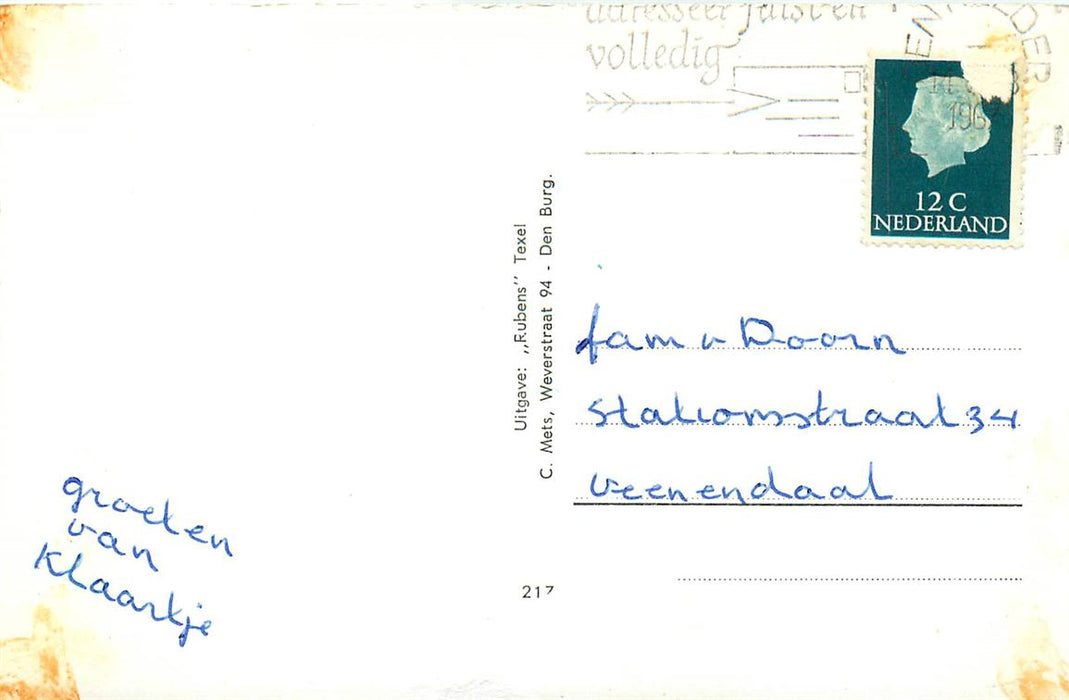 adresseer juist en
volledig
DEN HELDER
1967
12 C
NEDERLAND
Uitgave: „Rubens” Texel
C. Mets, Weverstraat 94 - Den Burg.
fam v Doorn
Stationsstraat 34
Veenendaal
groeten
van
Klaartje
217